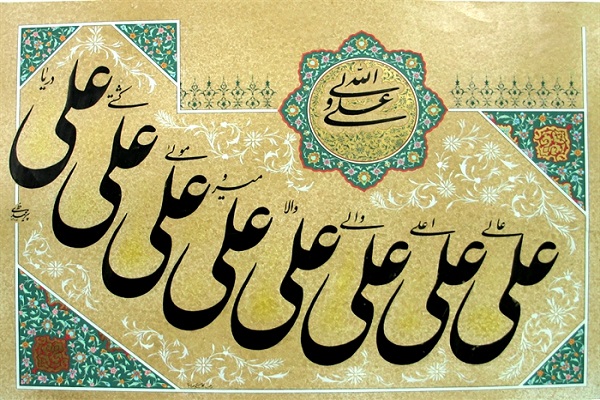 علی ولی الله
عالی علی اعلی علی والی علی والا علی میر و علی مولی علی کشتی علی دریا علی